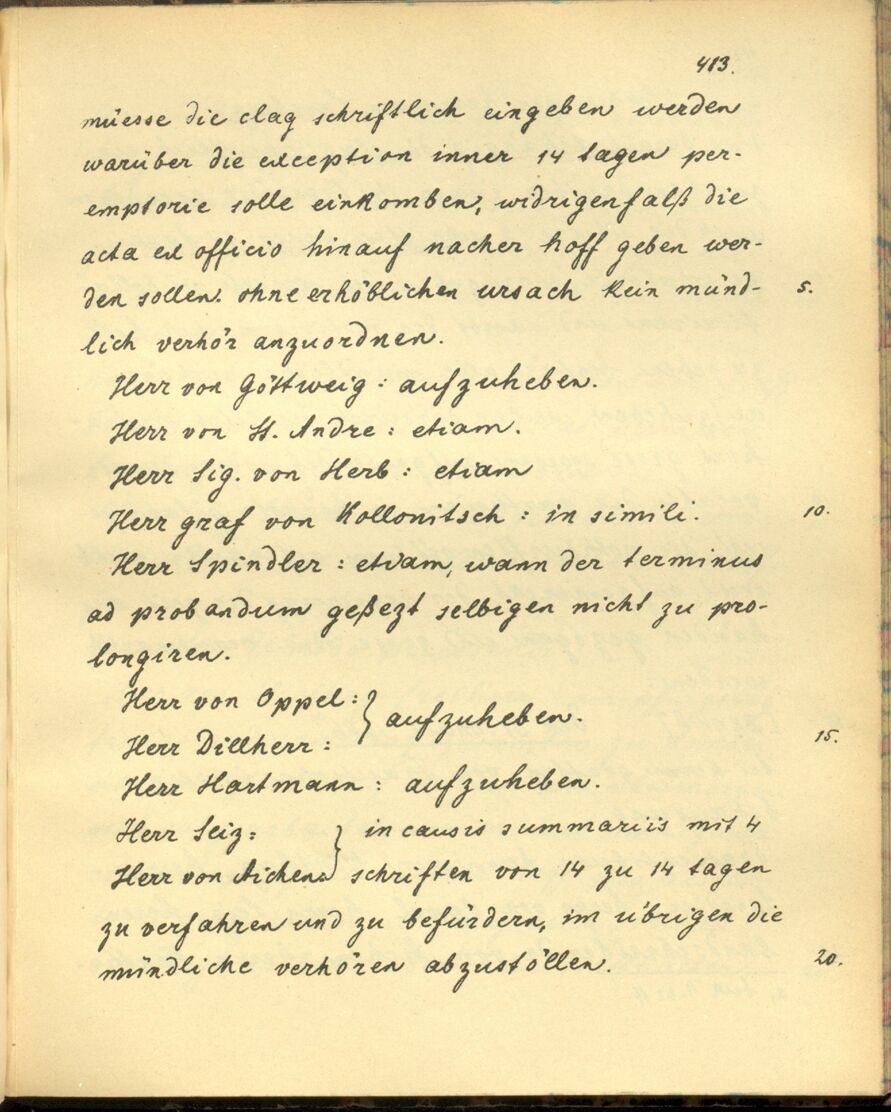 413.
müesse die clag schriftlich eingeben werden
warüber die exception inner 14 tagen per-
emptorie solle einkomben, widrigenfalß die
acta ex officio hinauf nacher hoff geben wer-
den sollen. ohne erhöblichen ursach kein münd- 5.
lich verhör anzuordnen.
Herr von Göttweig: aufzuheben.
Herr von St. Andre: etiam.
Herr Sig. von Herb: etiam
Herr graf von Kollonitsch: in simili. 10.
Herr Spindler: etiam, wann der terminus
ad probandum geßezt selbigen nicht zu pro-
longiren.
Herr von Oppel: } aufzuheben.
Herr Dillherr: 15.
Herr Hartmann: aufzuheben.
Herr Seiz: } in causis summariis mit 4
Herr von Aichen: schriften von 14 zu 14 tagen
zu verfahren und zu befürdern, im übrigen die
mündliche verhören abzustöllen. 20.